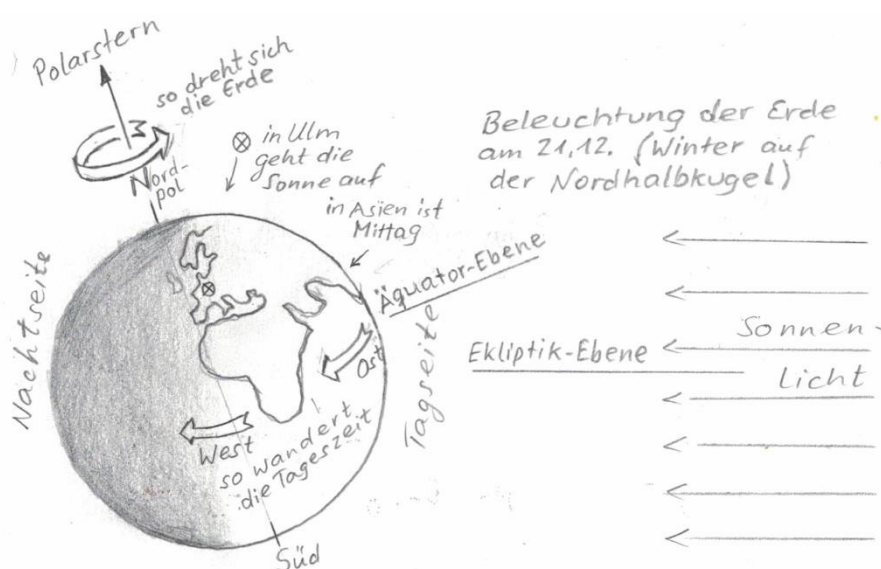 Polarstern
so dreht sich
die Erde
Nord-
pol
⊗ in Ulm
geht die
Sonne auf
in Asien ist
Mittag
Beleuchtung der Erde
am 21,12. (Winter auf
der Nordhalbkugel)
Äquator-Ebene
Ekliptik-Ebene
Sonnen-
licht
Nachtseite
Tagseite
Ost
West
so wandert
die Tageszeit
Süd